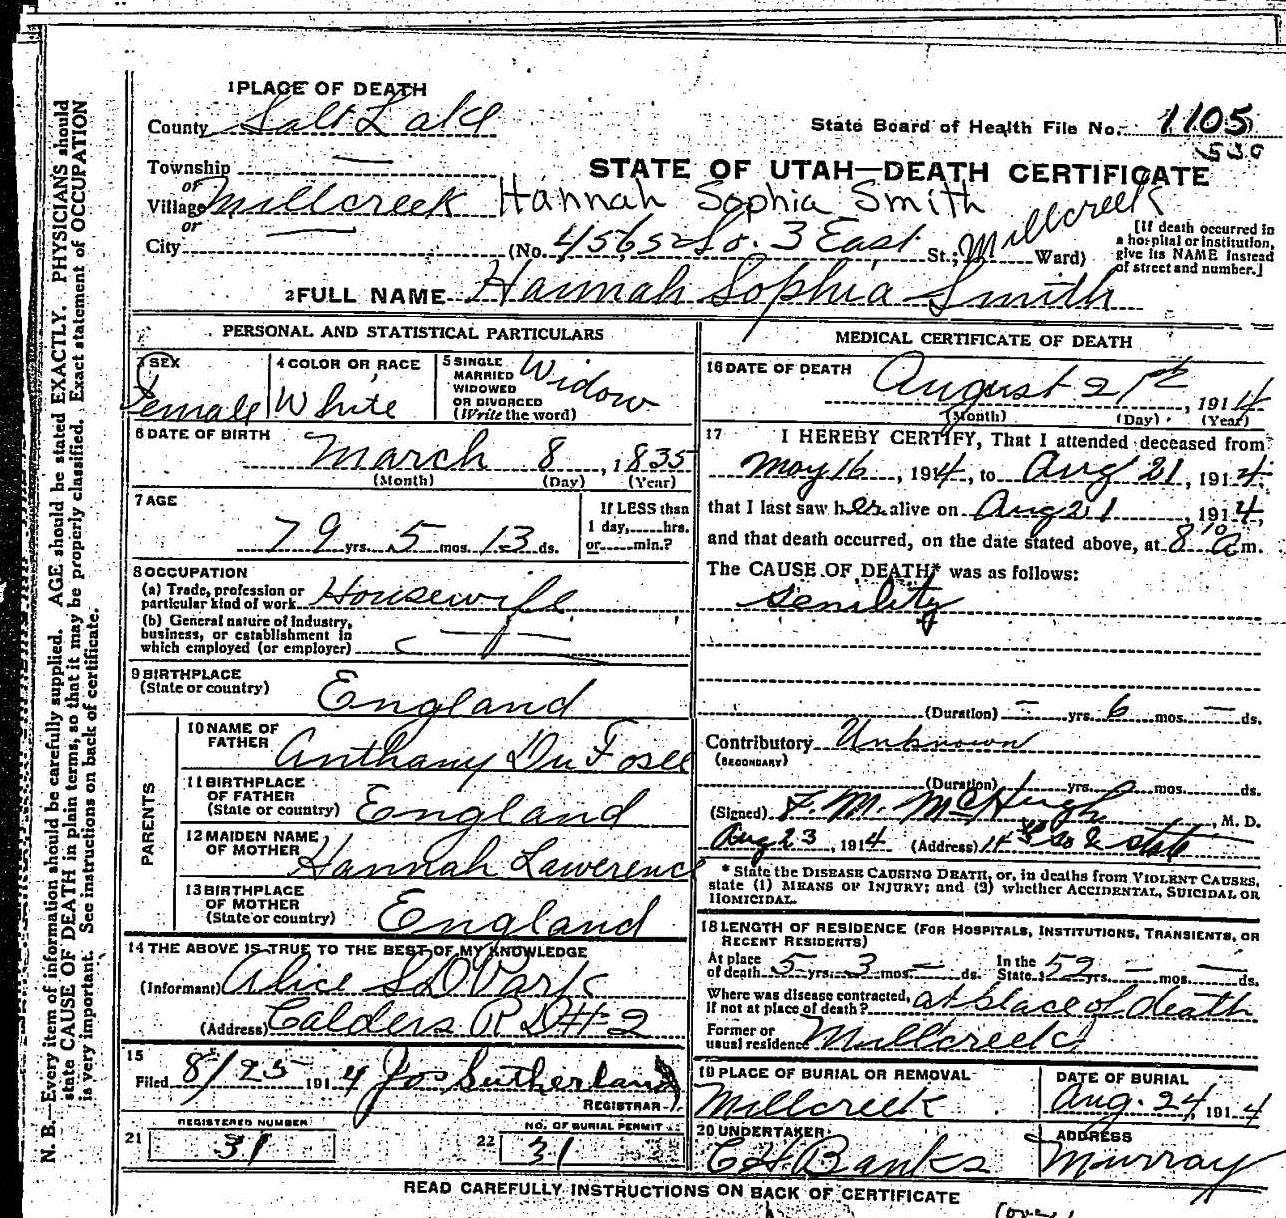 1 PLACE OF DEATH
County Salt Lake
State Board of Health File No. 1105
530
Township —
STATE OF UTAH—DEATH CERTIFICATE
or
Village Millcreek Hannah Sophia Smith
or
City — (No. 4565 So. 3 East St.; Millcreek Ward)
[If death occurred in
a hospital or institution,
give its NAME instead
of street and number.]
2 FULL NAME Hannah Sophia Smith
PERSONAL AND STATISTICAL PARTICULARS
3 SEX
Female
4 COLOR OR RACE
White
5 SINGLE
MARRIED
WIDOWED
OR DIVORCED
(Write the word)
Widow
6 DATE OF BIRTH
March 8, 1835
(Month) (Day) (Year)
7 AGE
79 yrs. 5 mos. 13 ds.
If LESS than
1 day,......hrs.
or......min.?
8 OCCUPATION
(a) Trade, profession or
particular kind of work Housewife
(b) General nature of industry,
business, or establishment in
which employed (or employer)
9 BIRTHPLACE
(State or country) England
PARENTS
10 NAME OF
FATHER Anthany Du Fosee
11 BIRTHPLACE
OF FATHER
(State or country) England
12 MAIDEN NAME
OF MOTHER Hannah Lawerence
13 BIRTHPLACE
OF MOTHER
(State or country) England
14 THE ABOVE IS TRUE TO THE BEST OF MY KNOWLEDGE
(Informant) Alice S D Park
(Address) Calders R D # 2
15
Filed 8/25 1914 Jos Sutherland
REGISTRAR
21
REGISTERED NUMBER
31
22
NO. OF BURIAL PERMIT
31
MEDICAL CERTIFICATE OF DEATH
16 DATE OF DEATH
August 21st, 1914
(Month) (Day) (Year)
17 I HEREBY CERTIFY, That I attended deceased from
May 16, 1914, to Aug 21, 1914,
that I last saw her alive on Aug 21, 1914,
and that death occurred, on the date stated above, at 8 10 a m.
The CAUSE OF DEATH* was as follows:
Senility
(Duration) — yrs. 6 mos. — ds.
Contributory Unknown
(SECONDARY)
(Duration) yrs. mos. ds.
(Signed) F. M. McHugh, M. D.
Aug 23, 1914 (Address) 14th So & State
* State the DISEASE CAUSING DEATH, or, in deaths from VIOLENT CAUSES,
state (1) MEANS OF INJURY; and (2) whether ACCIDENTAL, SUICIDAL OR
HOMICIDAL.
18 LENGTH OF RESIDENCE (FOR HOSPITALS, INSTITUTIONS, TRANSIENTS, OR
RECENT RESIDENTS)
At place
of death 5 yrs. 3 mos. — ds.
In the
State 52 yrs. — mos. — ds.
Where was disease contracted,
if not at place of death? at place of death
Former or
usual residence Millcreek
19 PLACE OF BURIAL OR REMOVAL
Millcreek
DATE OF BURIAL
Aug. 24, 1914
20 UNDERTAKER
C H Banks
ADDRESS
Murray
READ CAREFULLY INSTRUCTIONS ON BACK OF CERTIFICATE
(over)
N. B.—Every item of information should be carefully supplied. AGE should be stated EXACTLY. PHYSICIANS should
state CAUSE OF DEATH in plain terms, so that it may be properly classified. Exact statement of OCCUPATION
is very important. See instructions on back of certificate.